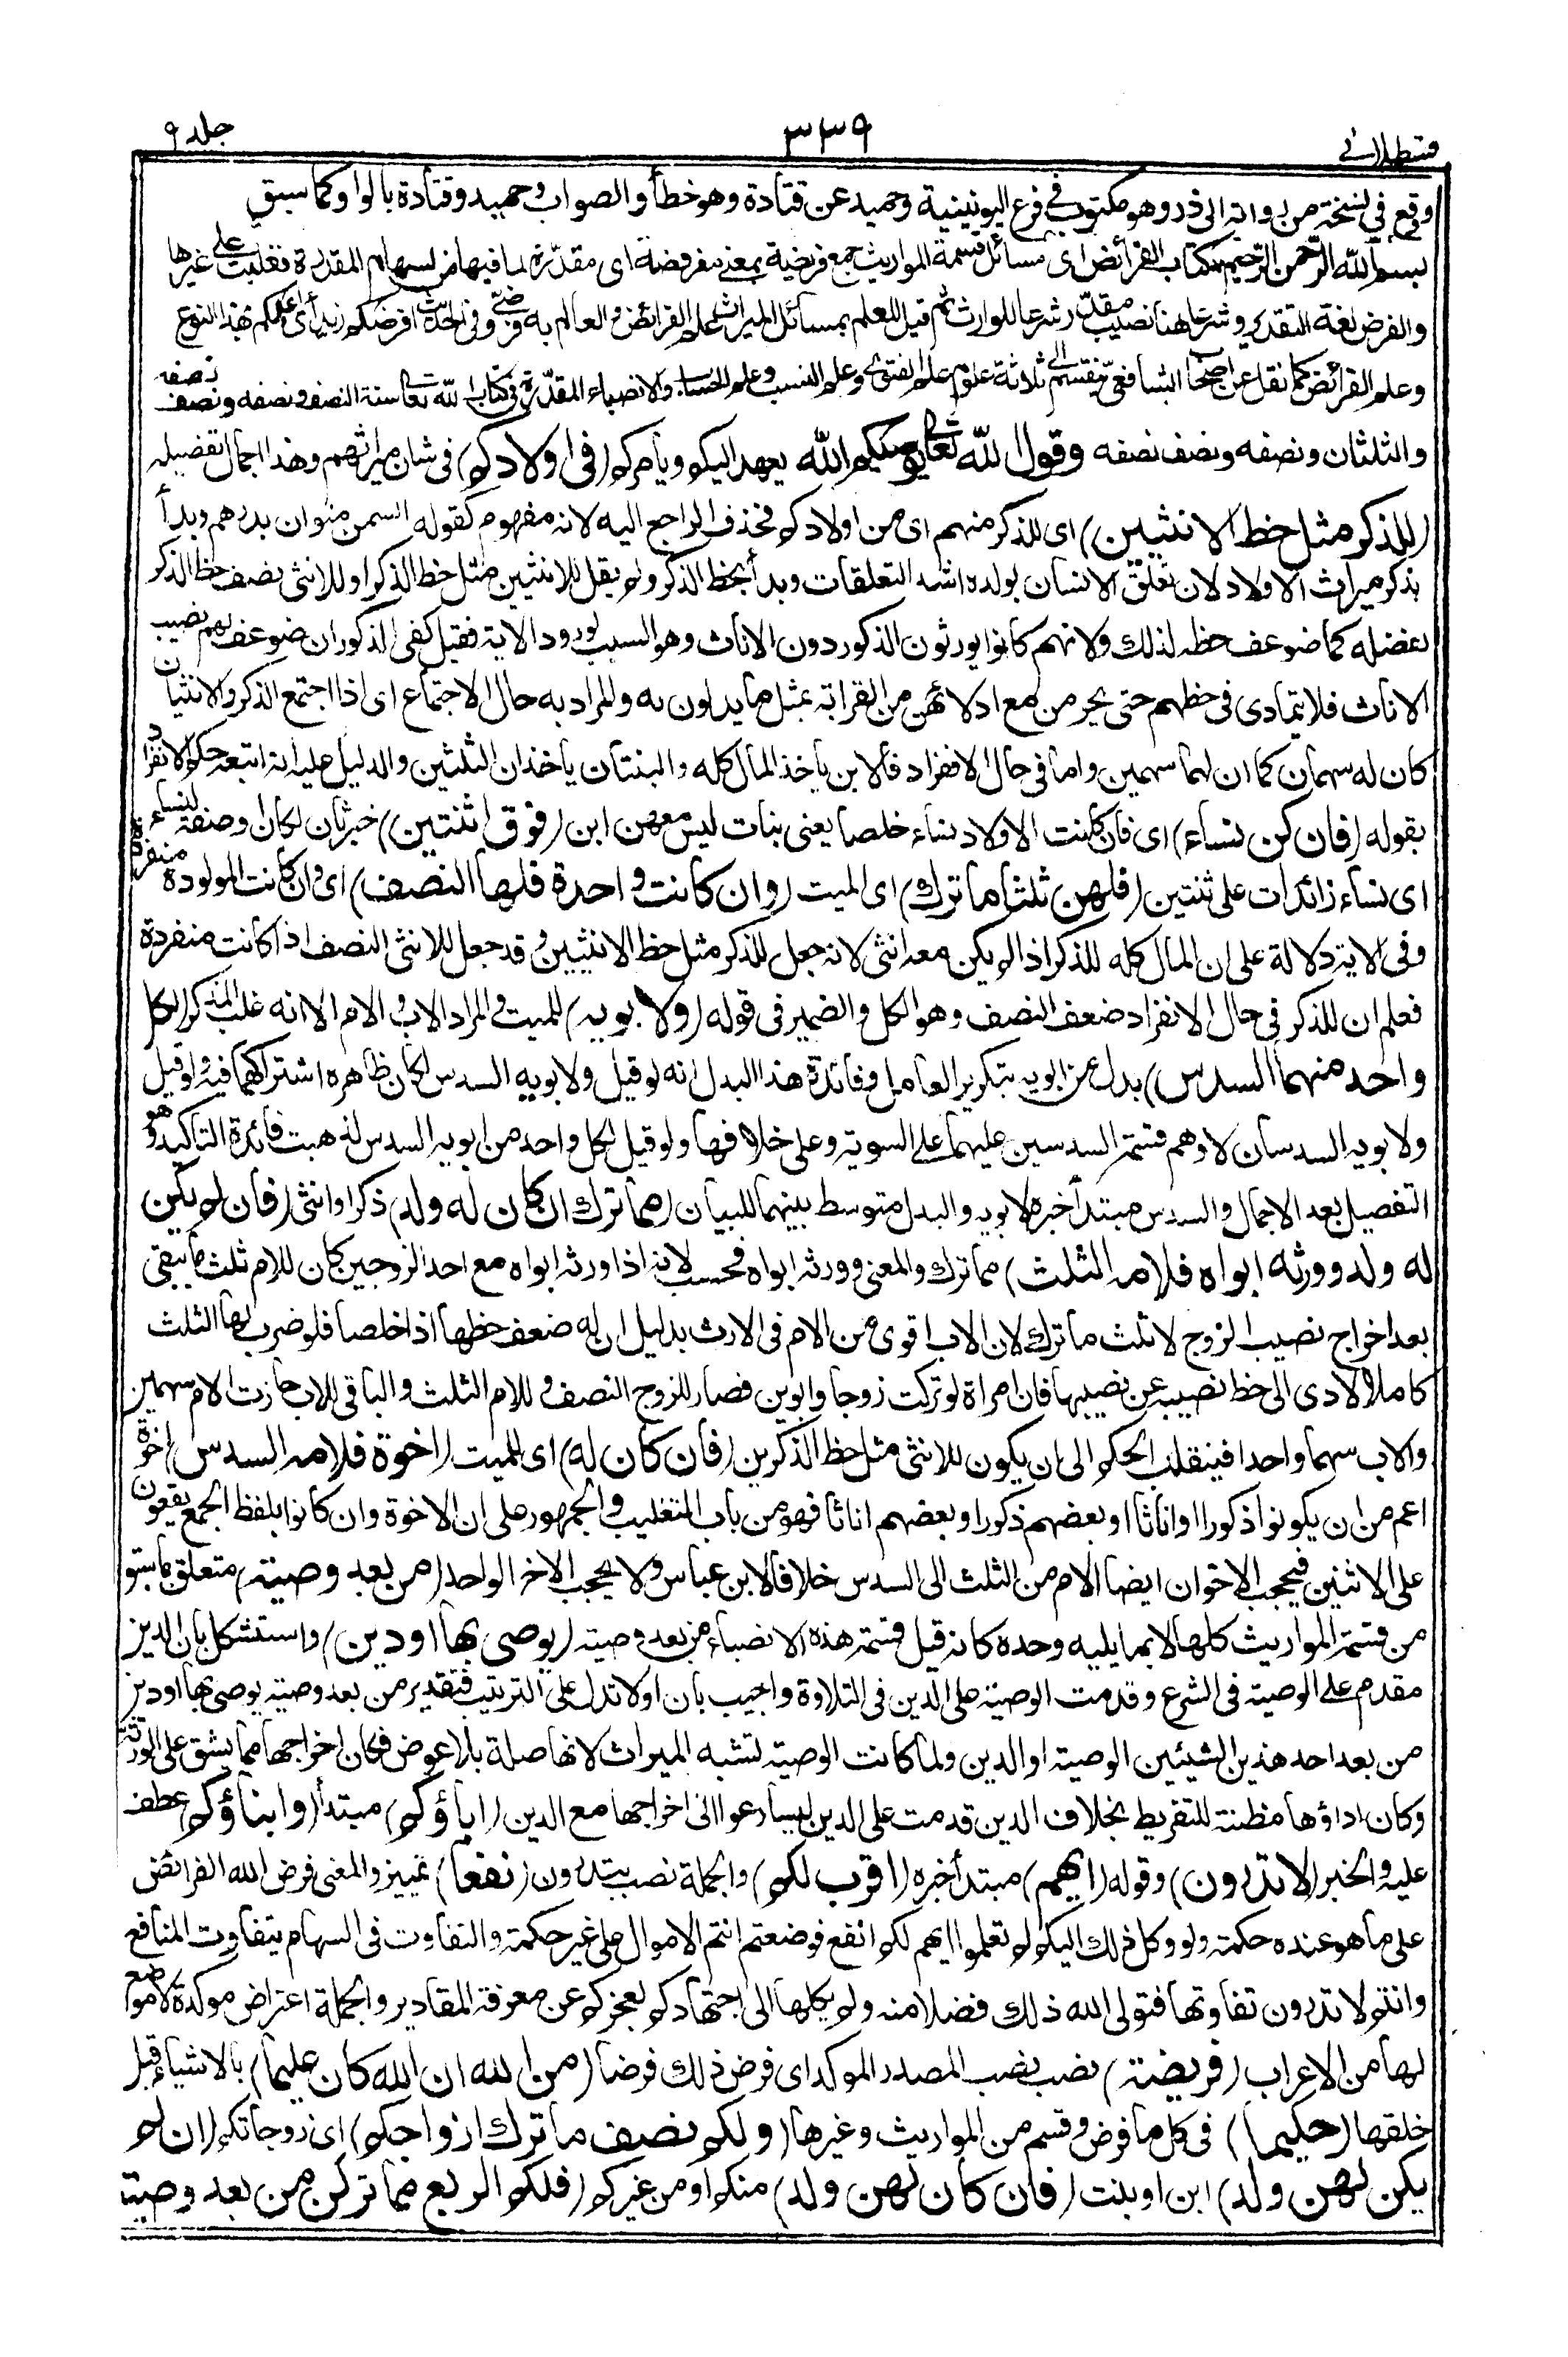 قسطلاني ٣٣٩ جلد ٩
وقع في نسخة من رواية ابى ذر وهو مكتوب في فرع اليونينية وحميد عن قتادة وهو خطأ والصواب وحميد وقتادة بالواو كما سبق
بسم الله الرحمن الرحيم كتاب الفرائض اى مسائل قسمة المواريث جمع فريضة بمعنى مفروضة اى مقدرة لما فيها من السهام المقدرة فغلبت على غيرها
والفرض لغة التقدير وشرعا هنا نصيب مقدر شرعا للوارث ثم قيل للعلم بمسائل الميراث علم الفرائض والعالم به فرضى وفى الحديث افرضكم زيد اى اعلمكم بهذا النوع
وعلم الفرائض كما نقل عن اصحاب الشافعى ينقسم الى ثلاثة علوم علم الفتوى وعلم النسب وعلم الحساب والانصباء المقدرة فى كتاب الله تعالى ستة النصف ونصفه ونصف نصفه
والثلثان ونصفه ونصف نصفه وقول الله تعالى يوصيكم الله يعهد اليكم ويأمركم (فى اولادكم) فى شان ميراثهم وهذا اجمال تفصيله
(للذكر مثل حظ الانثيين) اى للذكر منهم اى من اولادكم فحذف الراجع اليه لانه مفهوم كقوله السمن منوان بدرهم وبدأ
بذكر ميراث الاولاد لان تعلق الانسان بولده اشد التعلقات وبدأ بحظ الذكر ولم يقل للانثيين مثل حظ الذكر او للانثى نصف حظ الذكر
لفضله كما ضوعف حظه لذلك ولانهم كانوا يورثون الذكور دون الاناث وهو السبب لورود الاية فقيل كفى الذكور ان ضوعف لهم نصيب
الاناث فلا يتمادى فى حظهم حتى يحرمن مع ادلائهن من القرابة بمثل ما يدلون به والمراد به حال الاجتماع اى اذا اجتمع الذكر والانثيان
كان له سهمان كما ان لهما سهمين واما فى حال الانفراد فالابن ياخذ المال كله والبنتان ياخذان الثلثين والدليل عليه انه اتبعه حكم الانفراد
بقوله (فان كن نساء) اى فان كانت الاولاد نساء خلصا يعنى بنات ليس معهن ابن (فوق اثنتين) خبر ثان لكان او صفة لنساء
اى نساء زائدات على ثنتين (فلهن ثلثا ما ترك) اى الميت (وان كانت واحدة فلها النصف) اى وان كانت المولودة منفردة
وفى الاية دلالة على ان المال كله للذكر اذا لم يكن معه انثى لانه جعل للذكر مثل حظ الانثيين وقد جعل للانثى النصف اذا كانت منفردة
فعلم ان للذكر فى حال الانفراد ضعف النصف وهو الكل والضمير فى قوله (ولابويه) للميت والمراد الاب والام الا انه غلب المذكر (لكل
واحد منهما السدس) بدل من ابويه بتكرير العامل وفائدة هذا البدل انه لو قيل ولابويه السدس لكان ظاهره اشتراكهما فيه ولو قيل
ولابويه السدسان لاوهم قسمة السدسين عليهما على السوية وعلى خلافها ولو قيل لكل واحد من ابويه السدس لذهبت فائدة التاكيد وهو
التفصيل بعد الاجمال والسدس مبتدأ خبره لابويه والبدل متوسط بينهما للبيان (مما ترك ان كان له ولد) ذكرا وانثى (فان لم يكن
له ولد وورثه ابواه فلامه الثلث) مما ترك والمعنى وورثه ابواه فحسب لانه اذا ورثه ابواه مع احد الزوجين كان للام ثلث ما يبقى
بعد اخراج نصيب الزوج لا ثلث ما ترك لان الاب اقوى من الام فى الارث بدليل ان له ضعف حظها اذا خلصا فلو ضرب لها الثلث
كاملا لادى الى حظ نصيبه عن نصيبها فان امرأة لو تركت زوجا وابوين فصار للزوج النصف وللام الثلث والباقى للاب حازت الام سهمين
والاب سهما واحدا فينقلب الحكم الى ان يكون للانثى مثل حظ الذكرين (فان كان له) اى للميت (اخوة فلامه السدس) اخوة
اعم من ان يكونوا ذكورا او اناثا او بعضهم ذكورا وبعضهم اناثا فهو من باب التغليب والجمهور على ان الاخوة وان كانوا بلفظ الجمع يقعون
على الاثنين فيحجب الاخوان ايضا الام من الثلث الى السدس خلافا لابن عباس ولا يحجب الاخ الواحد (من بعد وصية) متعلق بما سبق
من قسمة المواريث كلها لا بما يليه وحده كانه قيل قسمة هذه الانصباء من بعد وصية (يوصى بها او دين) واستشكل بان الدين
مقدم على الوصية فى الشرع وقدمت الوصية على الدين فى التلاوة واجيب بان او لا تدل على الترتيب فتقدير من بعد وصية يوصى بها او دين
من بعد احد هذين الشيئين الوصية او الدين ولما كانت الوصية تشبه الميراث لانها صلة بلا عوض فكان اخراجها مما يشق على الورثة
وكان اداؤها مظنة للتفريط بخلاف الدين قدمت على الدين ليسارعوا الى اخراجها مع الدين (اباؤكم) مبتدأ (وابناؤكم) عطف
عليه والخبر (لا تدرون) وقوله (ايهم) مبتدأ خبره (اقرب لكم) والجملة نصب بتدرون (نفعا) تمييز والمعنى فرض الله الفرائض
على ما هو عنده حكمة ولو وكل ذلك اليكم لم تعلموا ايهم لكم انفع فوضعتم انتم الاموال على غير حكمة والتفاوت فى السهام بتفاوت المنافع
وانتم لا تدرون تفاوتها فتولى الله ذلك فضلا منه ولم يكلها الى اجتهادكم لعجزكم عن معرفة المقادير والجملة اعتراض موكدة لا موضع
لها من الاعراب (فريضة) نصب نصب المصدر الموكد اى فرض ذلك فرضا (من الله ان الله كان عليما) بالاشياء قبل
خلقها (حكيما) فى كل ما فرض وقسم من المواريث وغيرها (ولكم نصف ما ترك ازواجكم) اى زوجاتكم (ان لم
يكن لهن ولد) ابن او بنت (فان كان لهن ولد) منكم او من غيركم (فلكم الربع مما تركن من بعد وصية